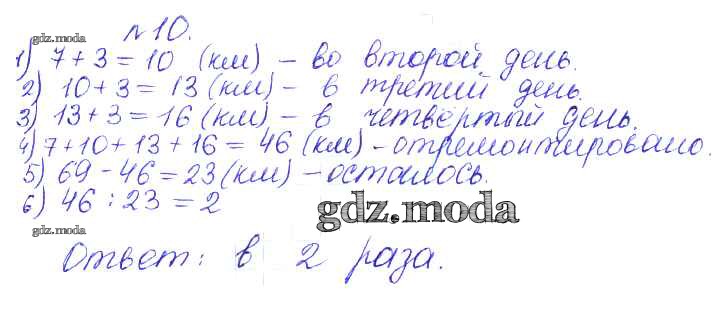 №10.
gdz.moda
1) 7+3=10 (км) – во второй день.
2) 10+3=13 (км) – в третий день.
3) 13+3=16 (км) – в четвёртый день.
4) 7+10+13+16=46 (км) – отремонтировано.
5) 69-46=23 (км) – осталось.
6) 46:23=2
gdz.moda
gdz.moda
Ответ: в 2 раза.